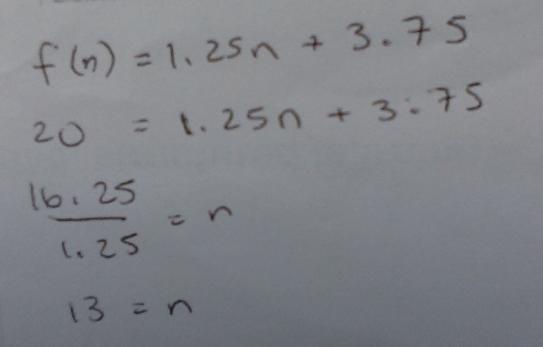 f(n) = 1.25n + 3.75
20 = 1.25n + 3.75
16.25/1.25 = n
13 = n